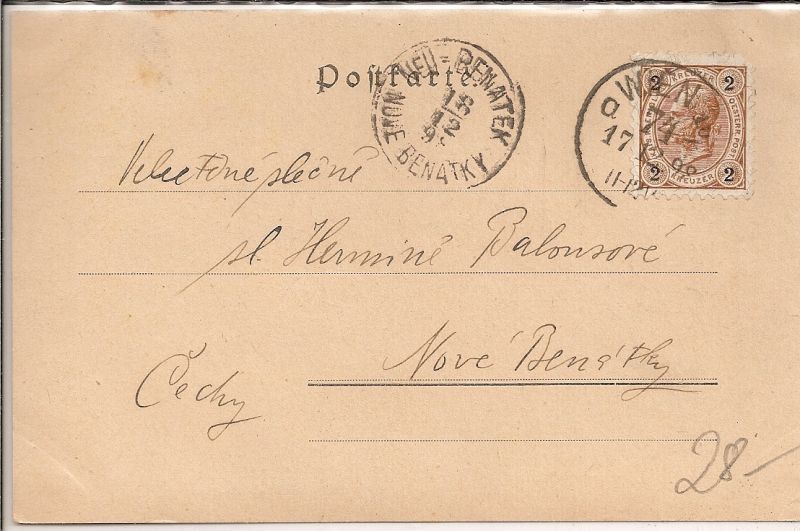 Postkarte.
NEU=BENATEK
18
12
NOVÉ BENÁTKY
WIEN
17
2 KREUZER 2
OESTERR. POST.
2 KREUZER 2
Velectěné slečně
sl. Hermině Balounsové
Nové Benátky
Čechy
28-